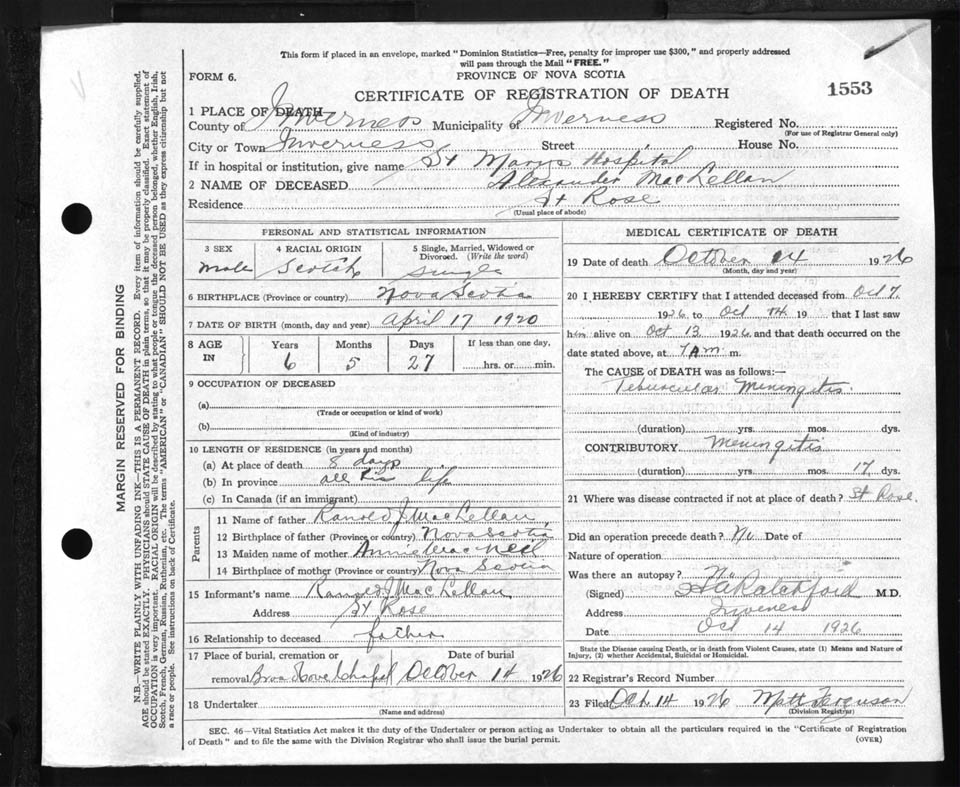 This form if placed in an envelope, marked "Dominion Statistics—Free, penalty for improper use $300," and properly addressed
will pass through the Mail "FREE."
FORM 6.
PROVINCE OF NOVA SCOTIA
CERTIFICATE OF REGISTRATION OF DEATH
1553
1 PLACE OF DEATH
County of Inverness Municipality of Inverness Registered No.
(For use of Registrar General only)
City or Town Inverness Street House No.
If in hospital or institution, give name St Marys Hospital
2 NAME OF DECEASED Alexander MacLellan
Residence St Rose
(Usual place of abode)
PERSONAL AND STATISTICAL INFORMATION
3 SEX 4 RACIAL ORIGIN 5 Single, Married, Widowed or
Divorced. (Write the word)
Male Scotch Single
6 BIRTHPLACE (Province or country) Nova Scotia
7 DATE OF BIRTH (month, day and year) April 17 1920
8 AGE IN Years Months Days If less than one day,
6 5 27 hrs. or min.
9 OCCUPATION OF DECEASED
(a)
(Trade or occupation or kind of work)
(b)
(Kind of industry)
10 LENGTH OF RESIDENCE (in years and months)
(a) At place of death 8 days
(b) In province all his life
(c) In Canada (if an immigrant)
Parents
11 Name of father Ranold J MacLellan
12 Birthplace of father (Province or country) Nova Scotia
13 Maiden name of mother Annie MacNeil
14 Birthplace of mother (Province or country) Nova Scotia
15 Informant's name Ranold J MacLellan
Address St Rose
16 Relationship to deceased father
17 Place of burial, cremation or Date of burial
removal Chapel October 14 1926
18 Undertaker
(Name and address)
MEDICAL CERTIFICATE OF DEATH
19 Date of death October 14 1926
(Month, day and year)
20 I HEREBY CERTIFY that I attended deceased from Oct 7
1926 to Oct 14 19 that I last saw
him alive on Oct 13 1926 and that death occurred on
date stated above, at 7 am m.
The CAUSE of DEATH was as follows:—
Tebuscular Meningitis
(duration) yrs. mos. dys.
CONTRIBUTORY Meningitis
(duration) yrs. mos. 17 dys.
21 Where was disease contracted if not at place of death? St Rose
Did an operation precede death? No Date of
Nature of operation
Was there an autopsy? No
(Signed) Ratchford M.D.
Address Inverness
Date Oct 14 1926
State the Disease causing Death, or in death from Violent Causes, state (1) Means and Nature of
Injury, (2) whether Accidental, Suicidal or Homicidal.
22 Registrar's Record Number
23 Filed Oct 14 1926 Matt Ferguson
(Division Registrar)
SEC. 46—Vital Statistics Act makes it the duty of the Undertaker or person acting as Undertaker to obtain all the particulars required in the "Certificate of Registration
of Death" and to file the same with the Division Registrar who shall issue the burial permit. (OVER)
MARGIN RESERVED FOR BINDING
N.B.—WRITE PLAINLY WITH UNFADING INK—THIS IS A PERMANENT RECORD. Every item of information should be carefully supplied.
AGE should be stated EXACTLY. PHYSICIANS should STATE CAUSE OF DEATH in plain terms, so that it may be properly classified. Exact statement of
OCCUPATION is very important. RACIAL ORIGIN will be described by stating to what people or tongue the deceased person belonged, whether English, Irish,
Scotch, French, German, Russian, Ruthenian, etc. The terms "AMERICAN" or "CANADIAN" SHOULD NOT BE USED as they express citizenship but not
a race or people. See instructions on back of Certificate.